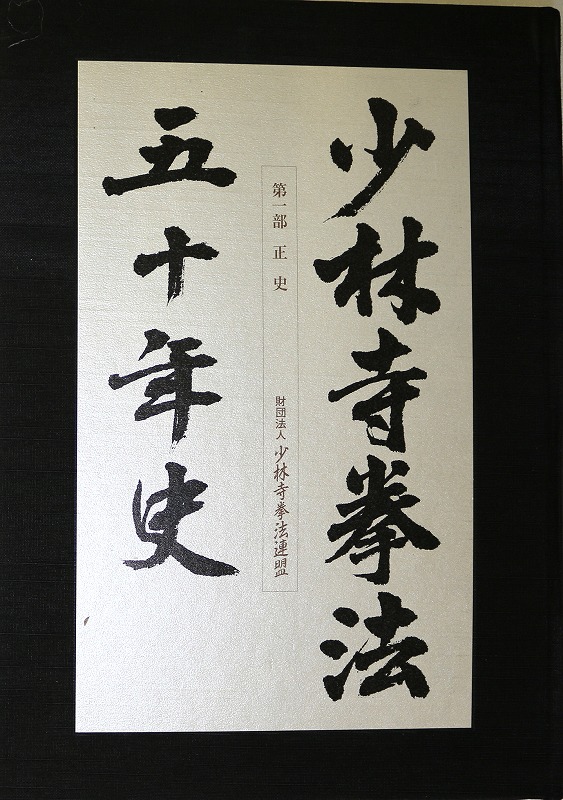 少林寺拳法
第一部 正史
財団法人 少林寺拳法連盟
五十年史